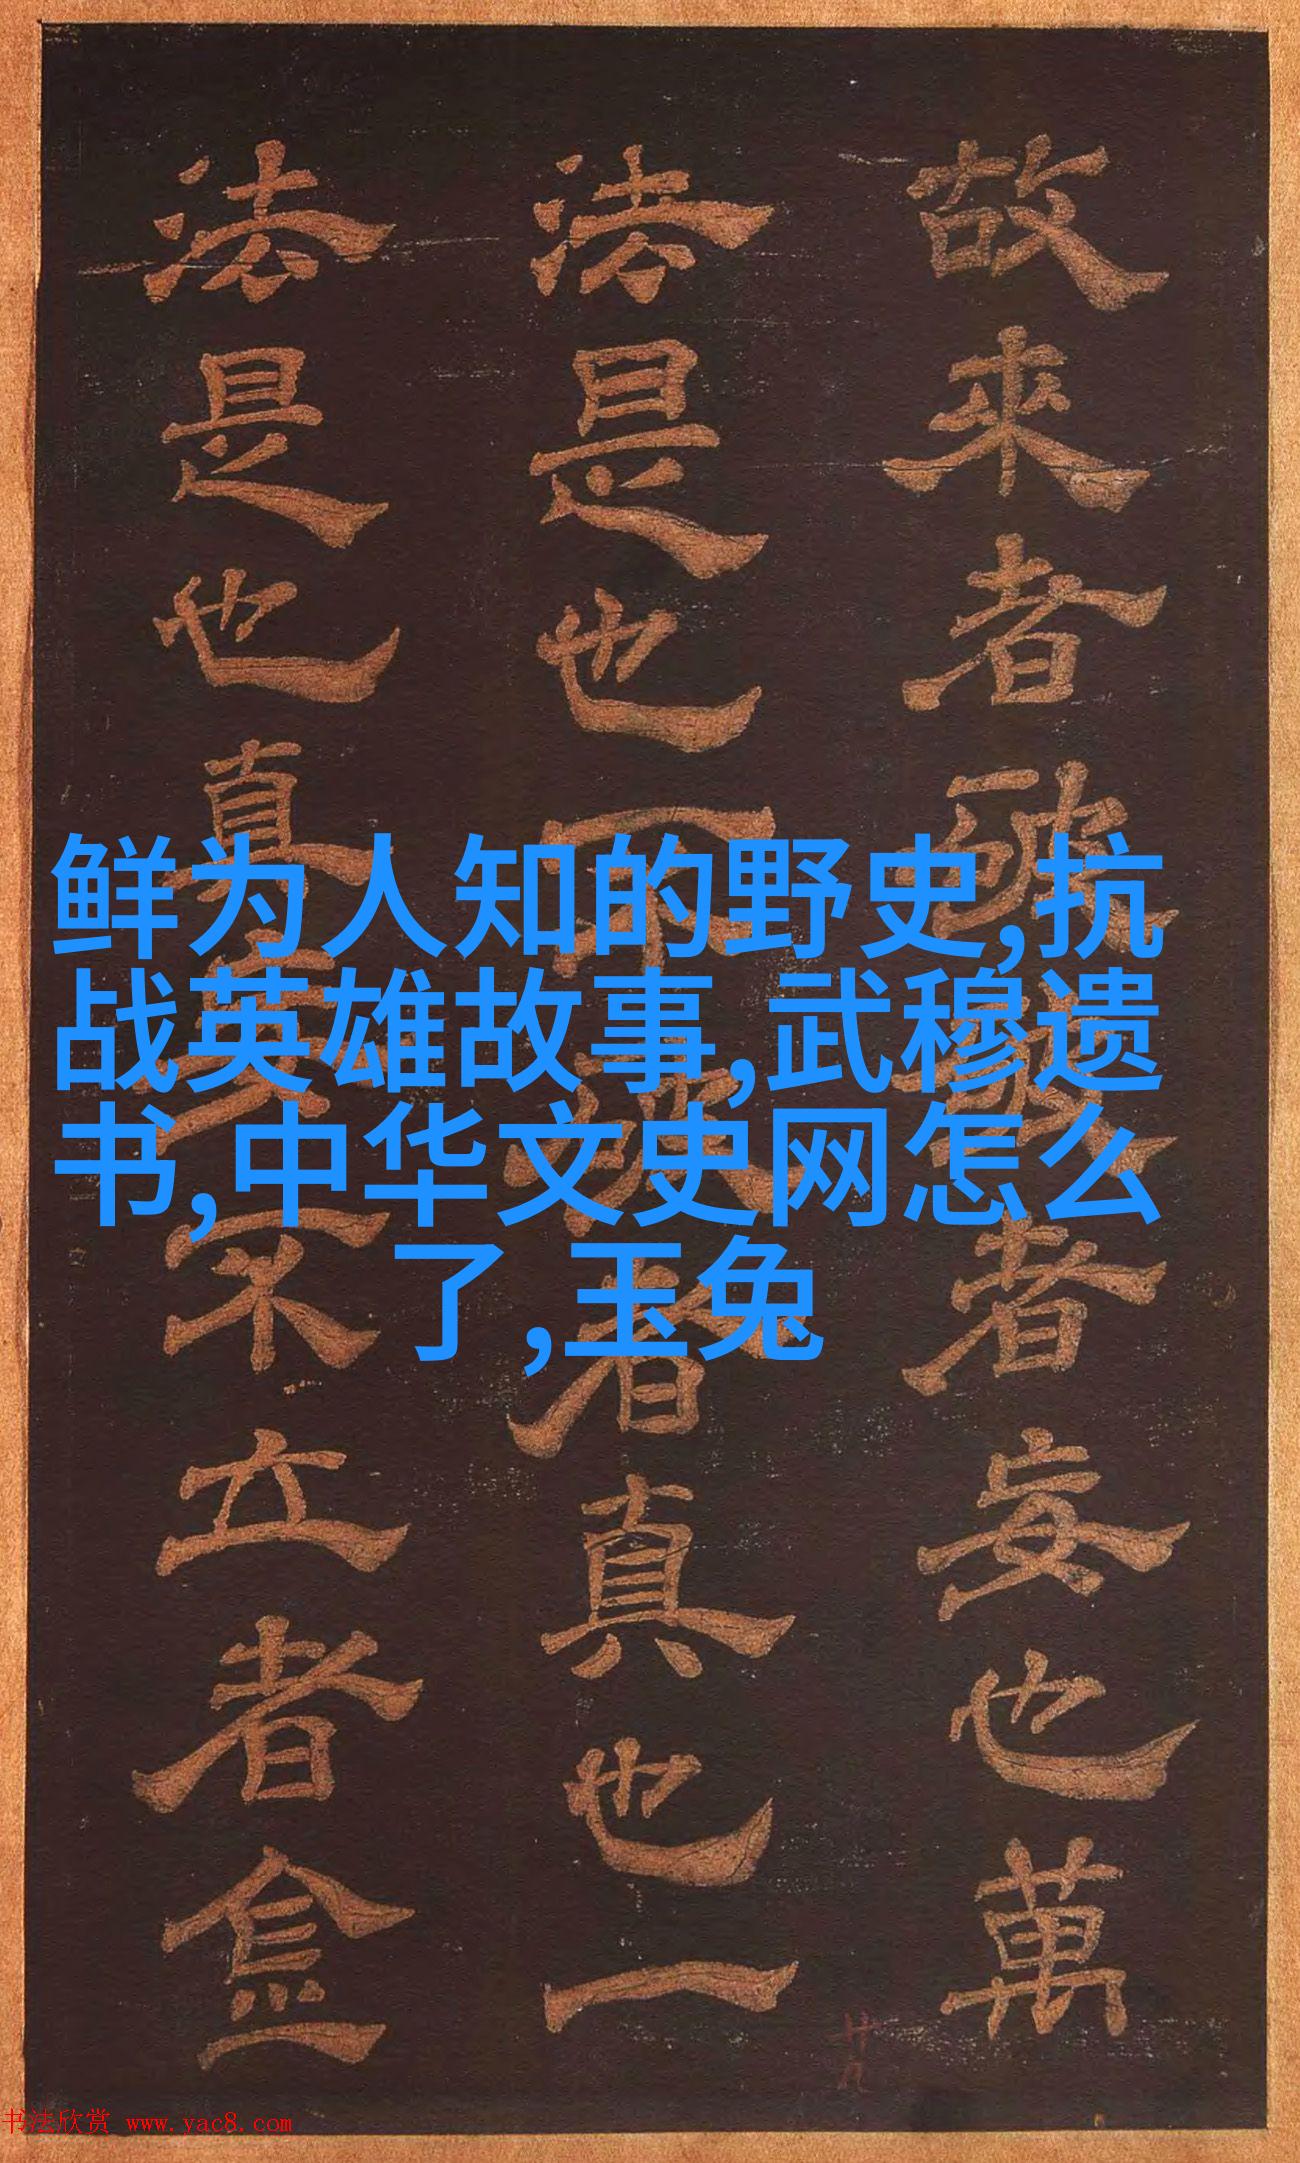 故來者破者妄也萬
法是也不破者真也一
法是也真妄不立者
鲜为人知的野史,抗
战英雄故事,武穆遗
书,中华文史网怎么
了,玉兔
廿九
书法欣赏 www.yac8.com